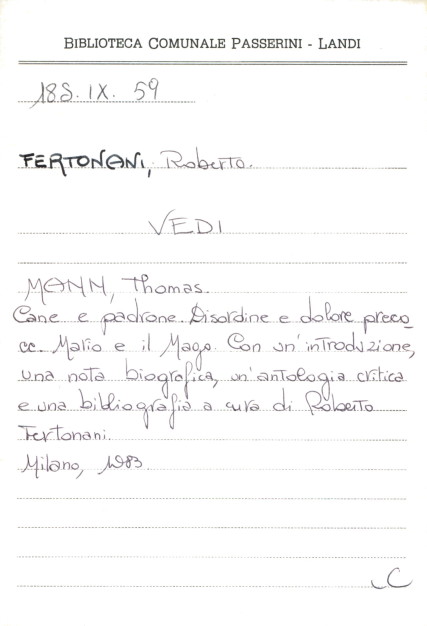 BIBLIOTECA COMUNALE PASSERINI - LANDI
18S. IX. 59
FERTONANI, Roberto.
VEDI
MANN, Thomas.
Cane e padrone. Disordine e dolore preco
ce. Mario e il Mago. Con un'introduzione,
una nota biografica, un'antologia critica
e una bibliografia a cura di Roberto
Fertonani.
Milano, 1983
C